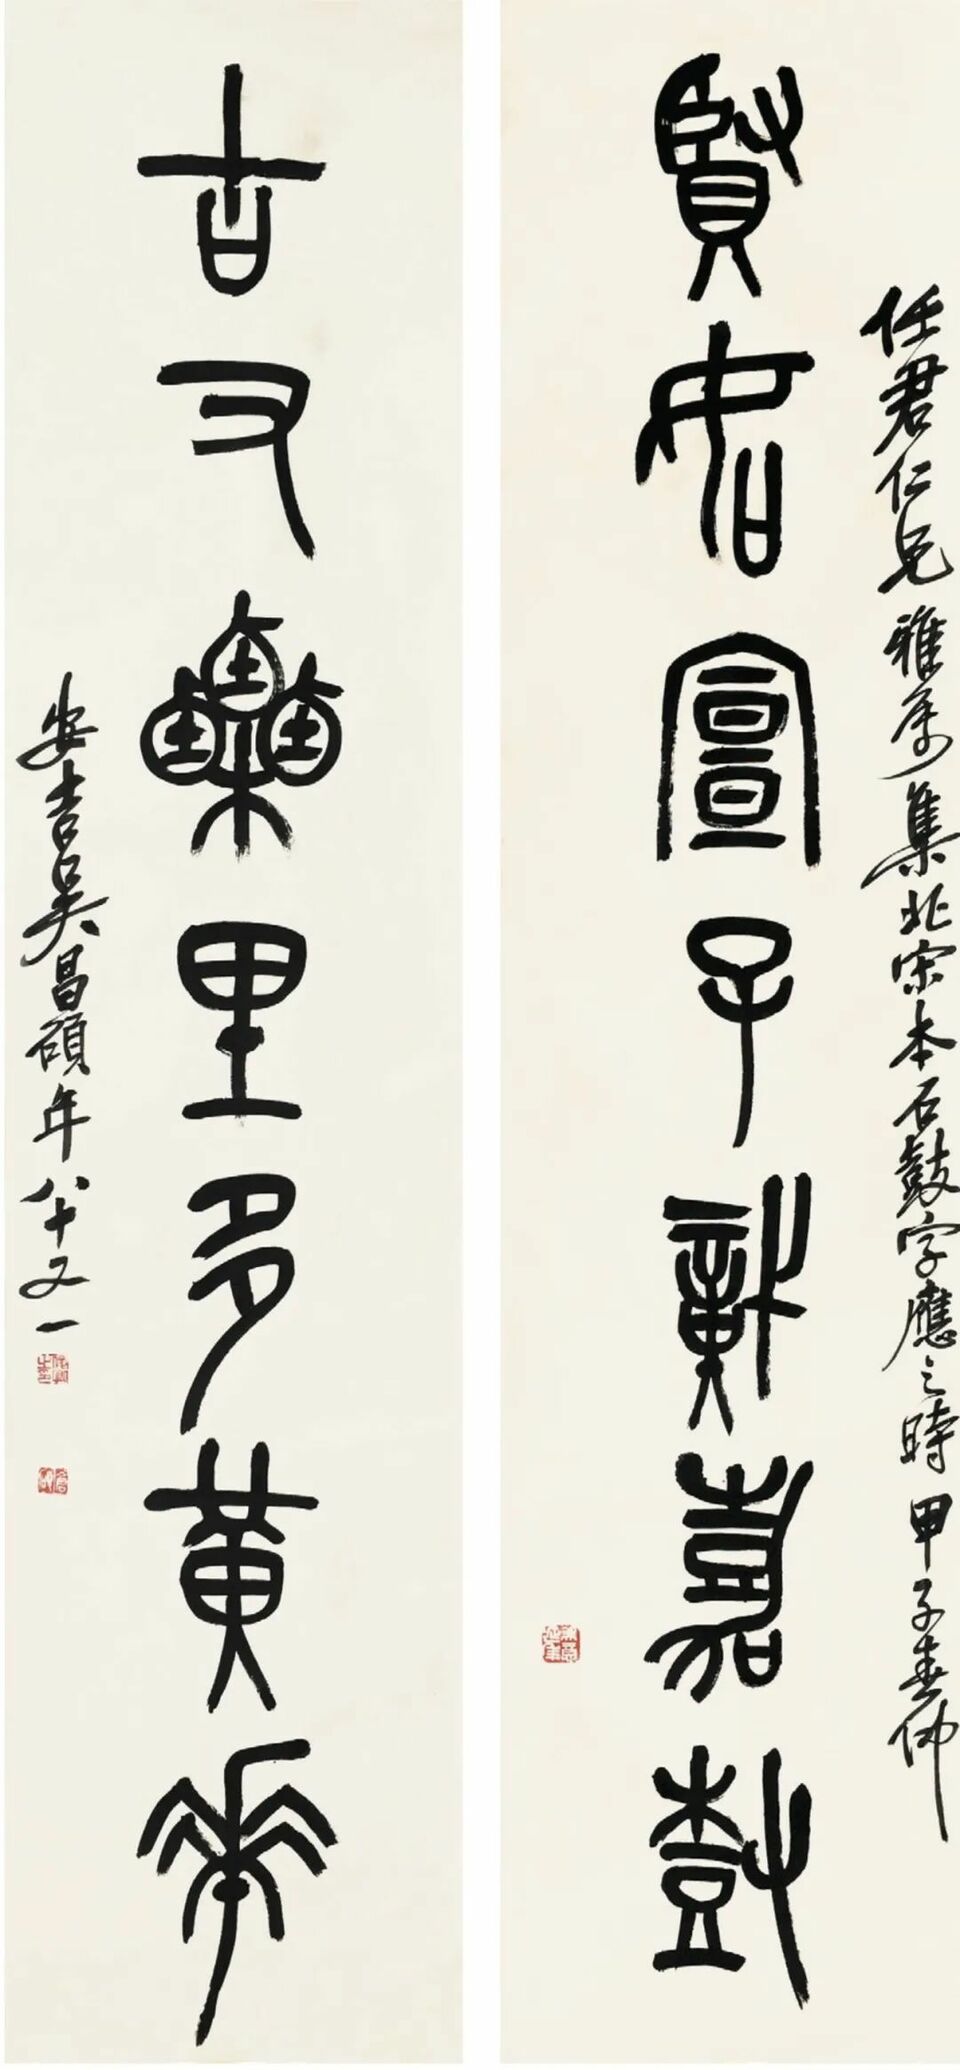 任君仁兄雅屬集北宋本石鼓字應之時甲子春仲
賢如宣子嘉樹
古又栗里多黃華
安吉吳昌碩年八十又一